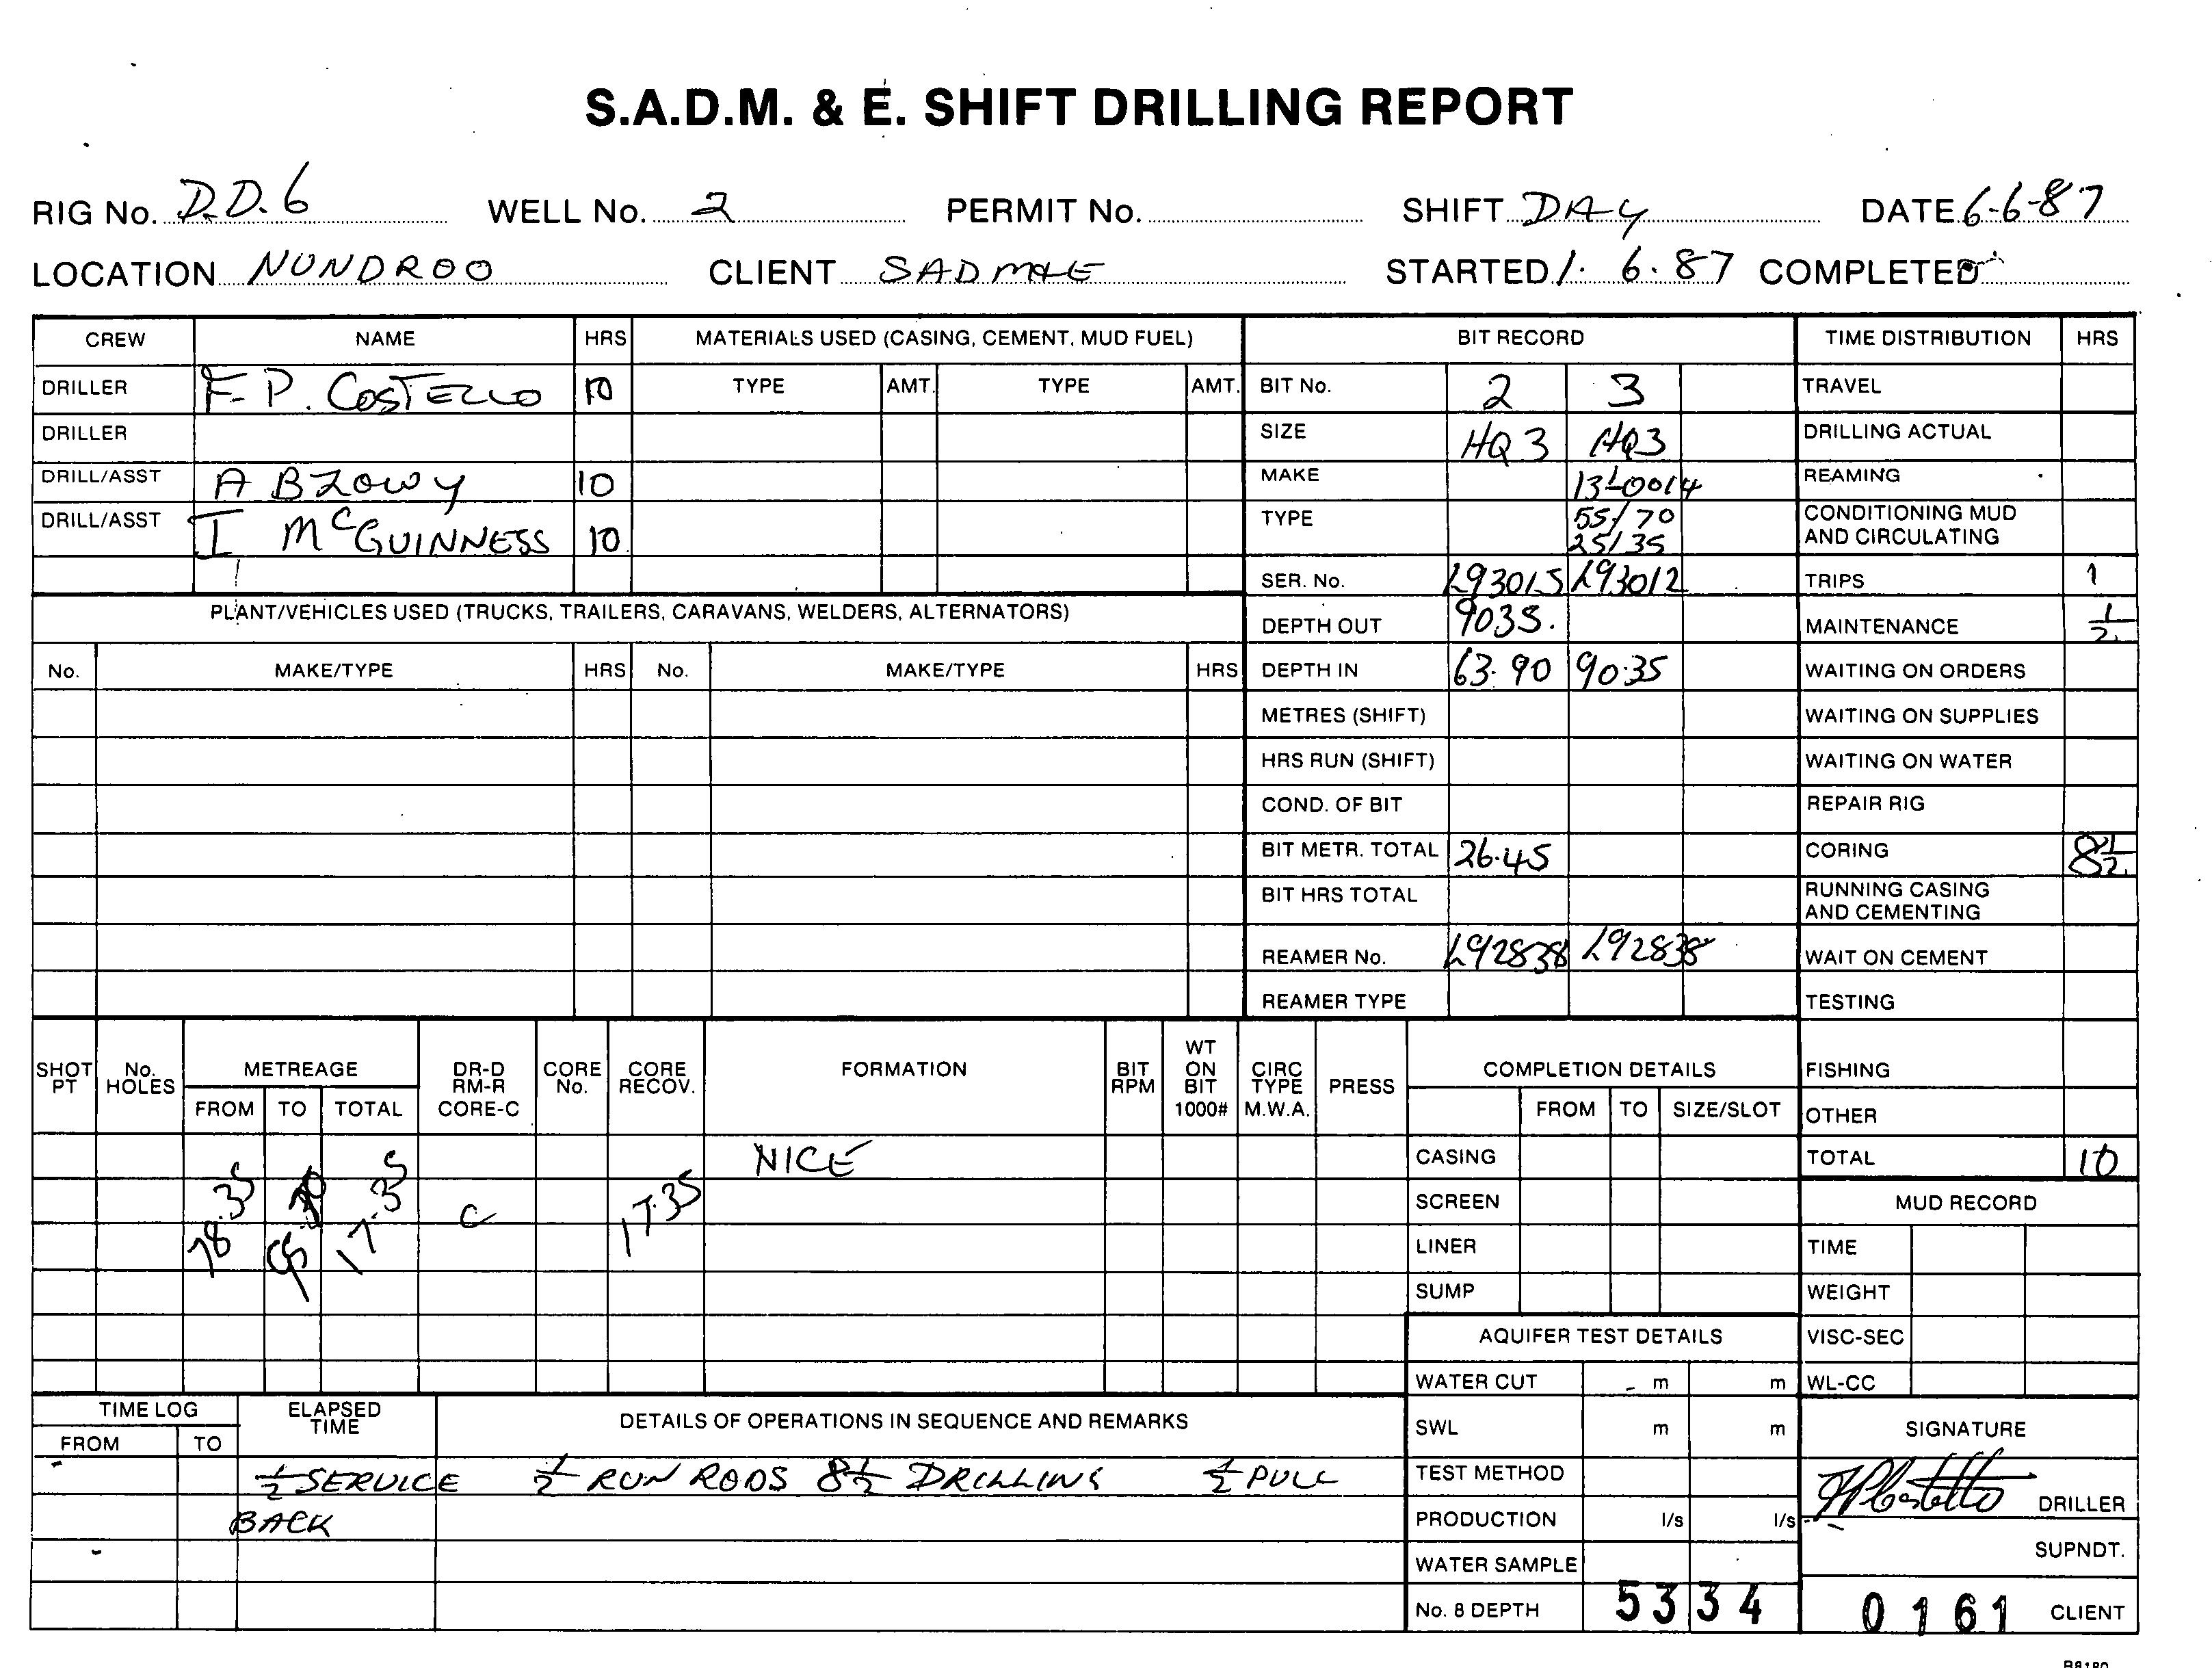 S.A.D.M. & E. SHIFT DRILLING REPORT
RIG No. D.D.6 WELL No. 2 PERMIT No. SHIFT DAY DATE 6-6-87
LOCATION NUNDROO CLIENT SADM&E STARTED 1. 6. 87 COMPLETED
CREW NAME HRS MATERIALS USED (CASING, CEMENT, MUD FUEL) BIT RECORD TIME DISTRIBUTION HRS
DRILLER F. P. COSTELLO 10 TYPE AMT. TYPE AMT. BIT No. 2 3 TRAVEL
DRILLER SIZE HQ3 HQ3 DRILLING ACTUAL
DRILL/ASST A 10 MAKE REAMING
DRILL/ASST I McGUINNESS 10 TYPE 55/70 25/35 CONDITIONING MUD AND CIRCULATING
SER. No. L93015 L93012 TRIPS 1
PLANT/VEHICLES USED (TRUCKS, TRAILERS, CARAVANS, WELDERS, ALTERNATORS) DEPTH OUT 9035. MAINTENANCE 1/2
No. MAKE/TYPE HRS No. MAKE/TYPE HRS DEPTH IN 63.90 90.35 WAITING ON ORDERS
METRES (SHIFT) WAITING ON SUPPLIES
HRS RUN (SHIFT) WAITING ON WATER
COND. OF BIT REPAIR RIG
BIT METR. TOTAL 26.45 CORING 8 1/2
BIT HRS TOTAL RUNNING CASING AND CEMENTING
REAMER No. L92838 L92838 WAIT ON CEMENT
REAMER TYPE TESTING
SHOT PT No. HOLES METREAGE DR-D RM-R CORE-C CORE No. CORE RECOV. FORMATION BIT RPM WT ON BIT 1000# CIRC TYPE M.W.A. PRESS COMPLETION DETAILS FISHING
FROM TO TOTAL FROM TO SIZE/SLOT OTHER
NICE CASING TOTAL 10
78.35 17.35 C 17.35 SCREEN MUD RECORD
LINER TIME
SUMP WEIGHT
AQUIFER TEST DETAILS VISC-SEC
WATER CUT m m WL-CC
TIME LOG ELAPSED TIME DETAILS OF OPERATIONS IN SEQUENCE AND REMARKS SWL m m SIGNATURE
FROM TO
1/2 SERVICE 1/2 RUN RODS 8 1/2 DRILLING 1/2 PULL TEST METHOD DRILLER
BACK PRODUCTION l/s l/s
WATER SAMPLE SUPNDT.
No. 8 DEPTH 5334 0161 CLIENT